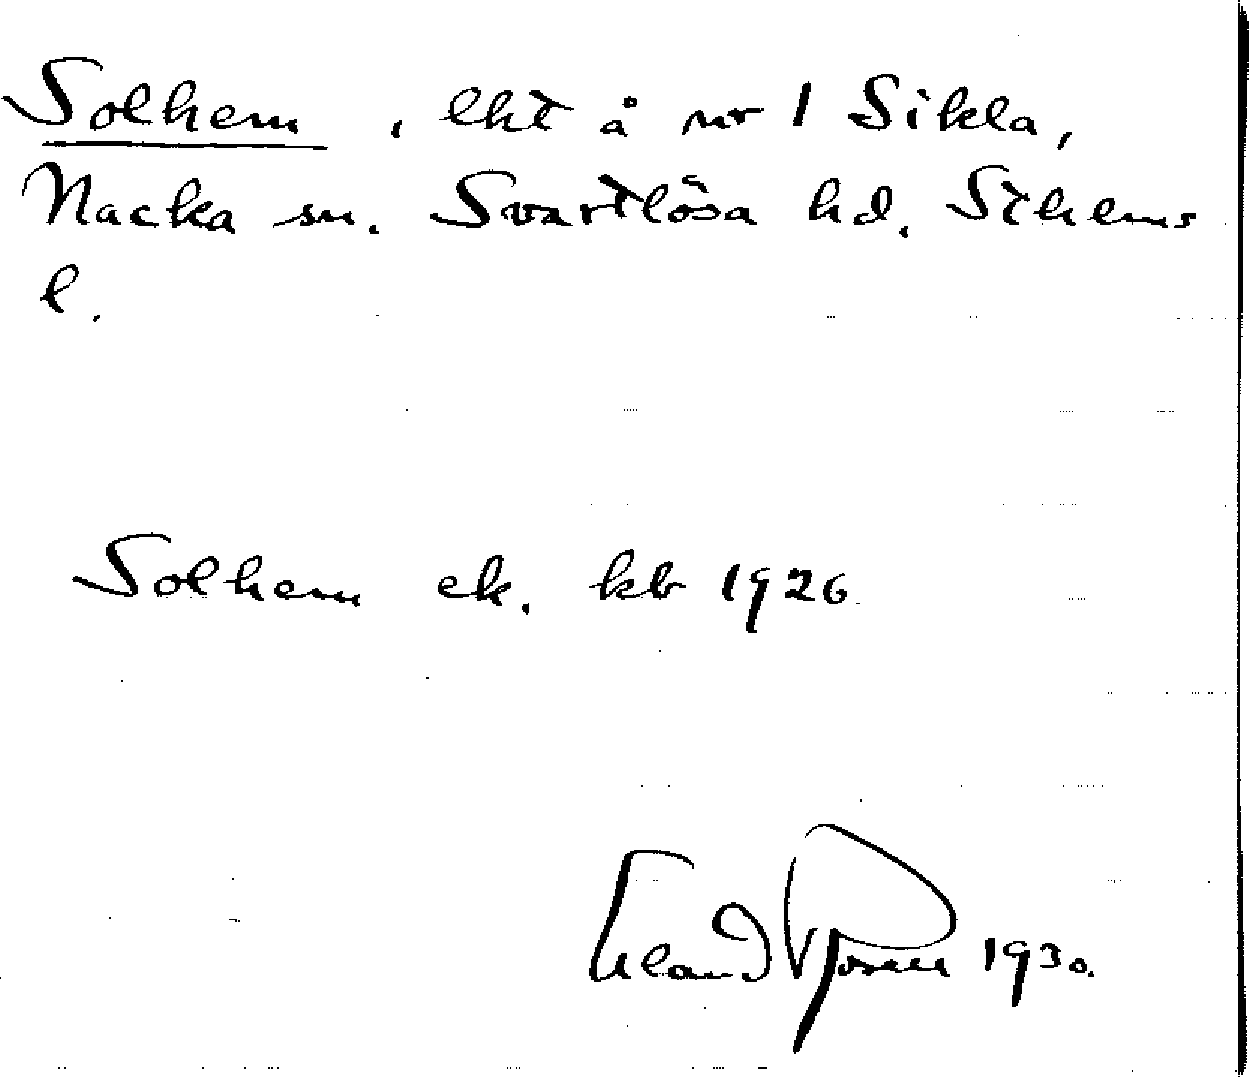 Solhem, lht å nr 1 Sikla,
Nacka sn. Svartlösa hd. Sthlms
l.
Solhem ek. kb 1926
Erland Rosell 1930.